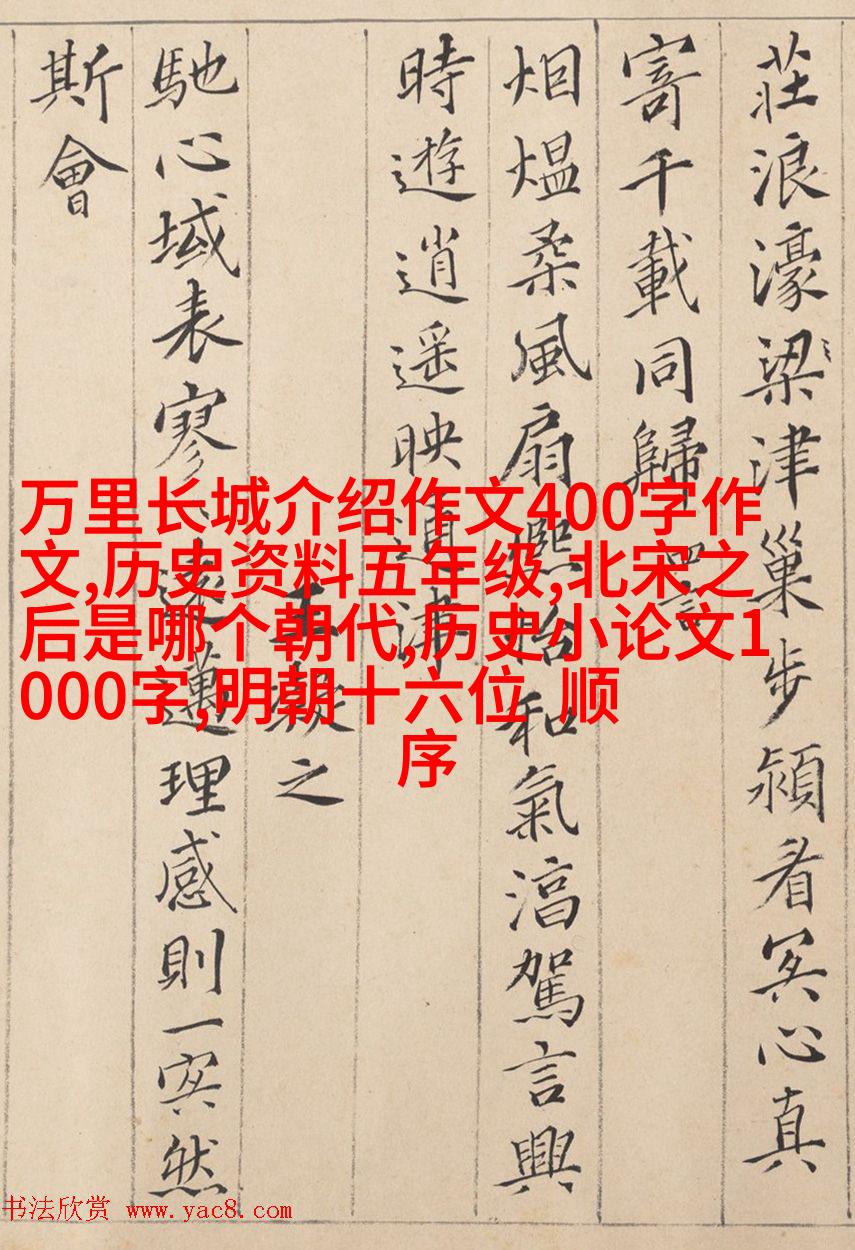 莊浪濠梁津巢步潁看冥心真
寄千載同歸 四言
烟熅柔風扇熈怡和氣淯駕言興
時遊逍遥映通津
王凝之
馳心域表寥〻遠邁理感則一冥然
斯會
万里长城介绍作文400字作
文,历史资料五年级,北宋之
后是哪个朝代,历史小论文1
000字,明朝十六位 顺
序
书法欣赏 www.yac8.com